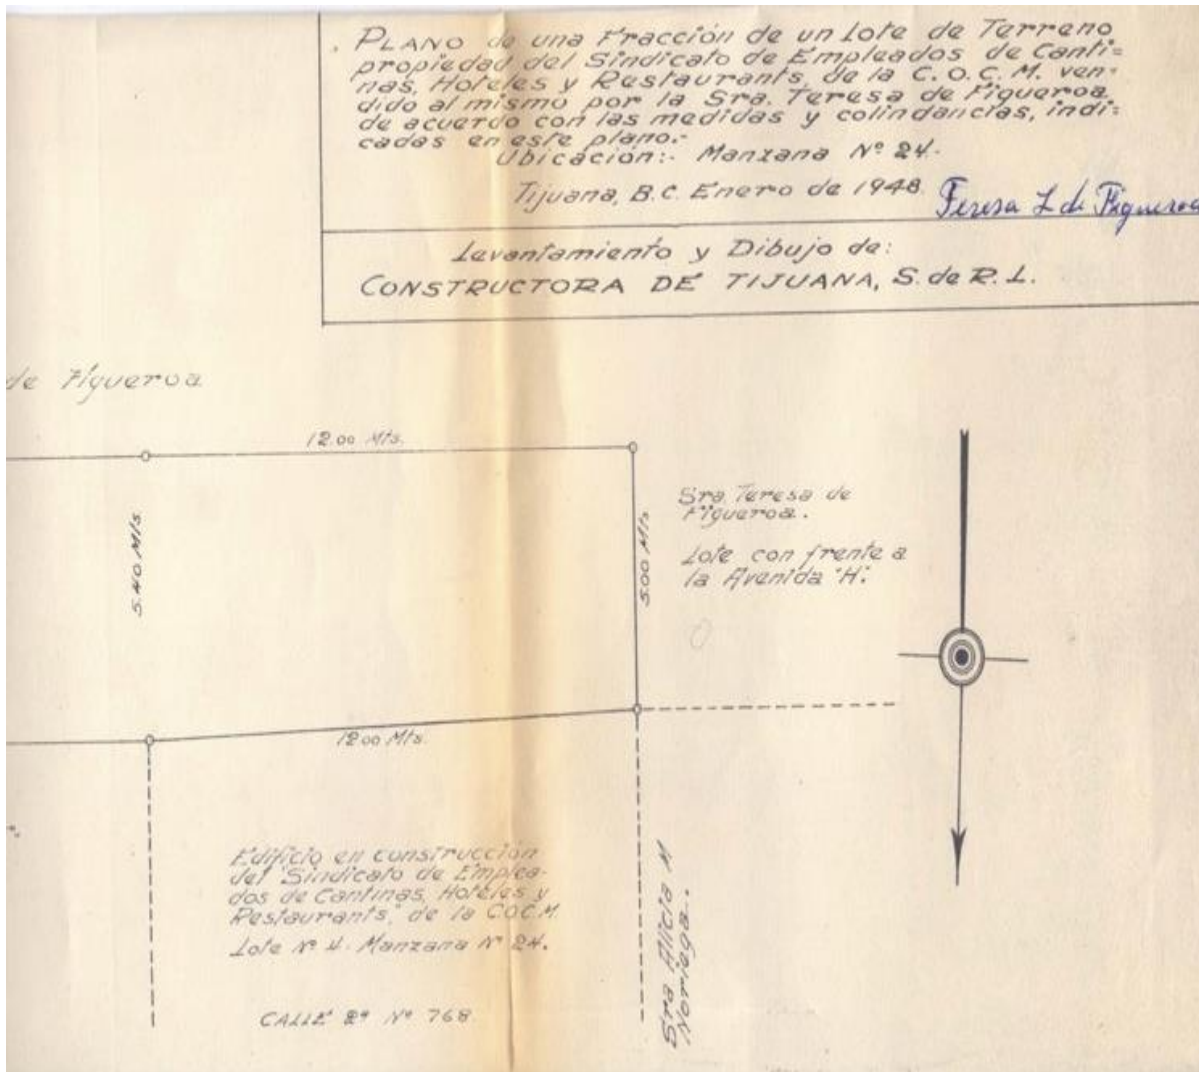 PLANO de una Fracción de un Lote de Terreno
propiedad del Sindicato de Empleados de Canti=
nas, Hoteles y Restaurants, de la C. O. C. M. ven-
dido al mismo por la Sra. Teresa de Figueroa
de acuerdo con las medidas y colindancias, indi=
cadas en este plano.-
Ubicación:- Manzana Nº 24.-
Tijuana, B.C. Enero de 1948.
Teresa L de Figueroa
Levantamiento y Dibujo de:
CONSTRUCTORA DE TIJUANA, S. de R. L.
de Figueroa
12.00 Mts.
5.40 Mts.
5.00 Mts.
Sra. Teresa de
Figueroa.
Lote con frente a
la Avenida "H".
12.00 Mts.
Edificio en construcción
del "Sindicato de Emplea-
dos de Cantinas, Hoteles y
Restaurants", de la C.O.C.M.
Lote Nº 4. Manzana Nº 24.
CALLE 2ª Nº 768
Sra Alicia M
Noriega.-